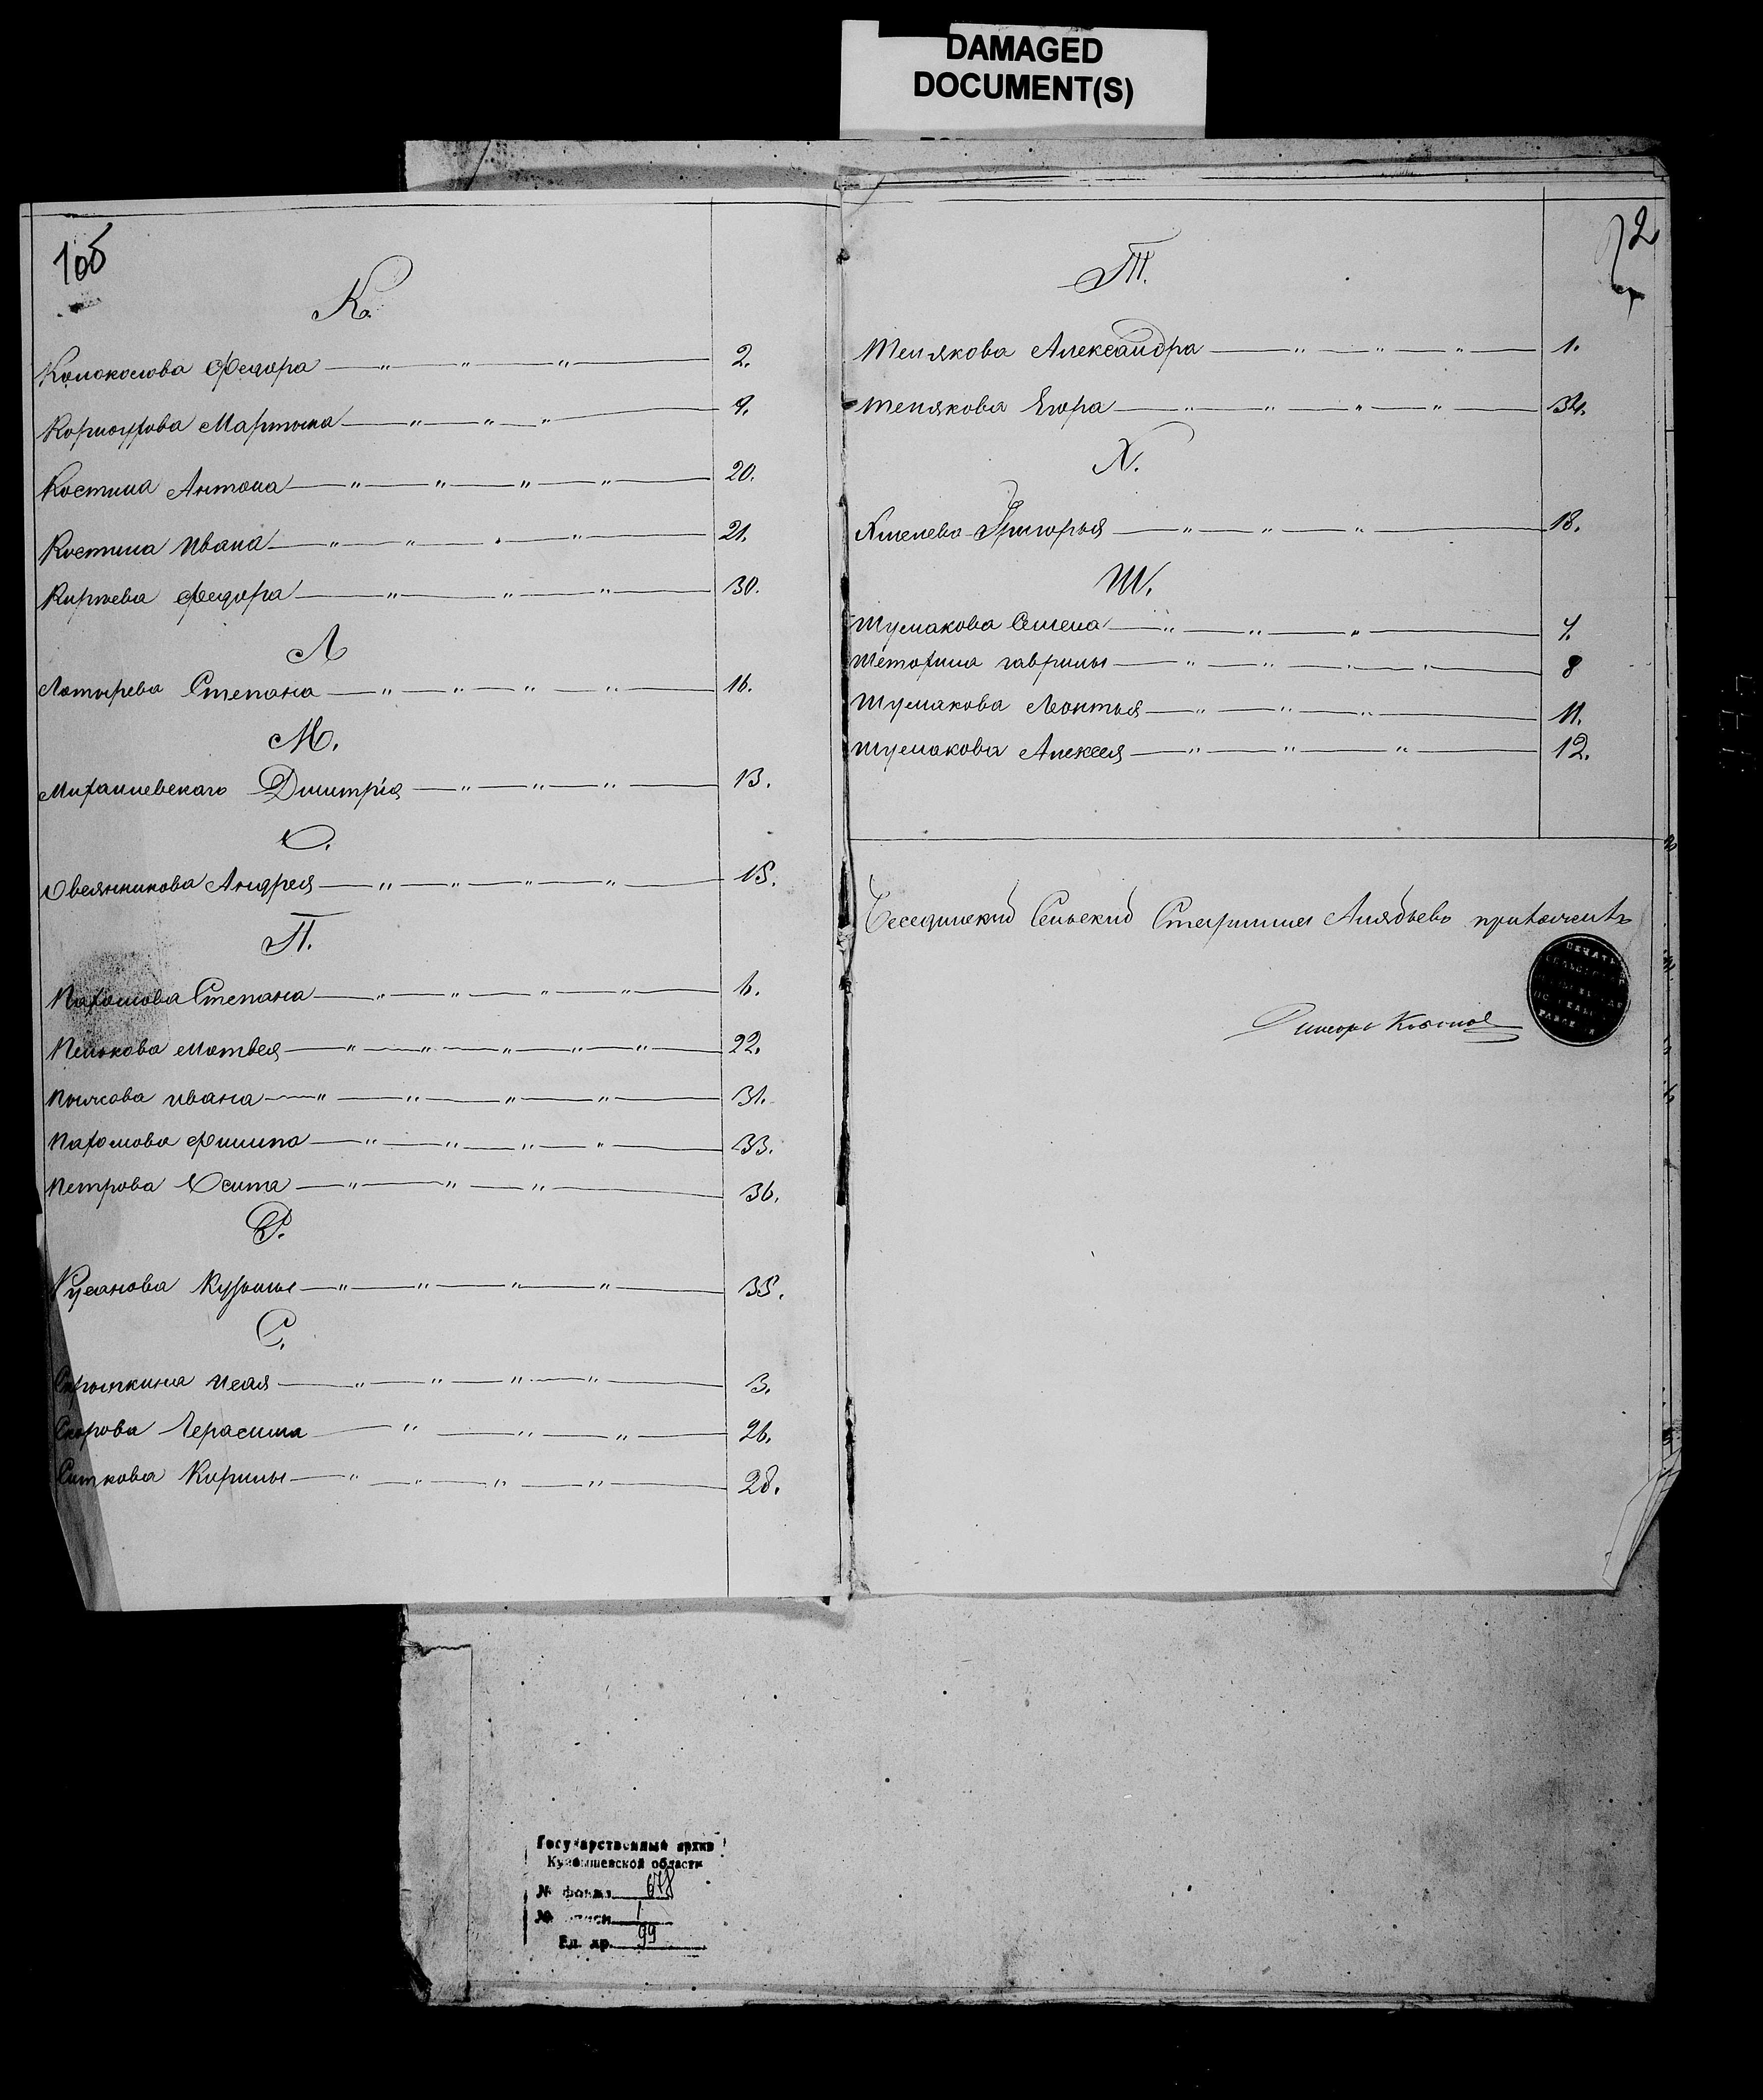 DAMAGED
DOCUMENT(S)
1об
К.
Колоколова Федора 2.
Кормоухова Мартына 9.
Костина Антона 20.
Костина Ивана 21.
Киреева Федора 30.
Л
Лотырева Степана 16.
М.
Михаилевскаго Дмитрія 13.
О.
Овсянникова Андрея 15.
П.
Пахомова Степана 6.
Пенькова Матвея 22.
Ивана 31.
Пахомова Филипа 33.
Петрова Осипа 36.
Р.
Русанова Кузьмы 35.
С.
Исая 3.
Скорова Герасима 26.
Ситкова Кирилы 28.
2
Т.
Теплякова Александра 1.
Теплякова Егора 34.
Х.
Хмелева Григорья 18.
Ш.
Шумакова Семена 7.
Шетохина Гаврилы 8
Шумакова Леонтья 11.
Шумакова Алексея 12.
Сельский Старшина Алябьевъ
ПЕЧАТЬ
Государственный архив
Куйбышевской области
№ фонда 678
№ описи 1
Ед. хр. 99